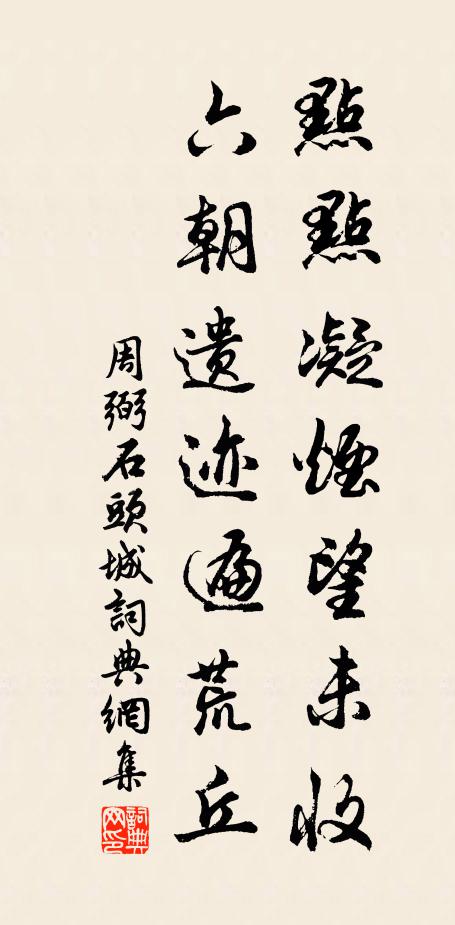 點點凝煙望未收
六朝遺迹遍荒丘
周弼石頭城詞典網集
詞典
网印